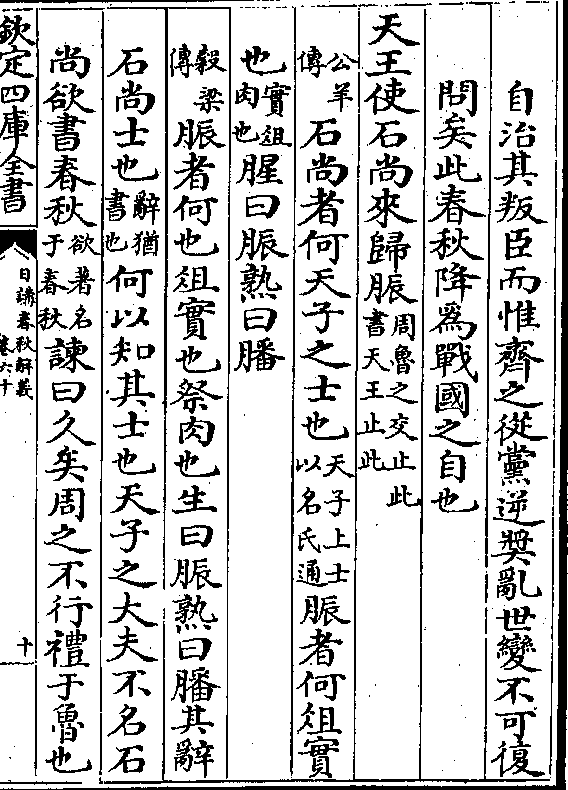 自治其叛臣而惟齊之從黨逆奬亂世變不可復
問矣此春秋降爲戰國之自也
天王使石尚來歸脤周魯之交止此書天王止此
公羊傳石尚者何天子之士也天子上士以名氏通脤者何俎實
也實俎肉也腥曰脤熟曰膰
穀梁傳脤者何也俎實也祭肉也生曰脤熟曰膰其辭
石尚士也辭猶書也何以知其士也天子之大夫不名石
尚欲書春秋欲著名于春秋諫曰久矣周之不行禮于魯也
欽定四庫全書
日講春秋解義
卷六十
十